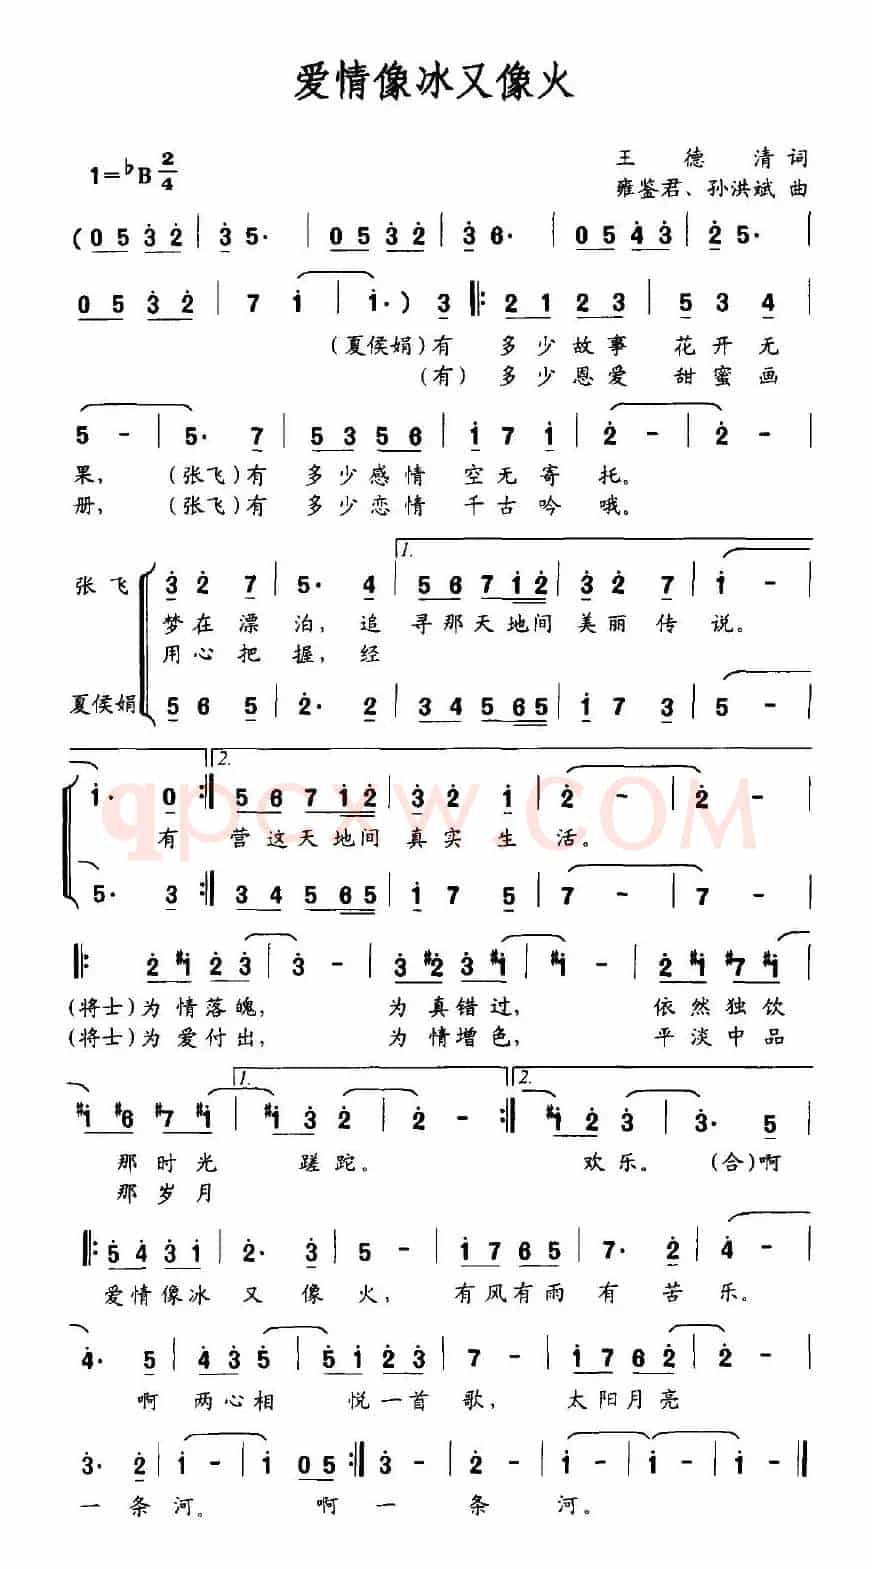 爱情像冰又像火
1=♭B 2/4
王 德 清 词
雍鉴君、孙洪斌 曲
(0 5 3 2 | 3 5· | 0 5 3 2 | 3 6· | 0 5 4 3 | 2 5· |
0 5 3 2 | 7 1 | 1·) 3 ‖: 2 1 2 3 | 5 3 4 |
(夏侯娟)有 多少故事 花开无
(有) 多少恩爱 甜蜜画
5 - | 5· 7 | 5 3 5 6 | 1 7 1 | 2 - | 2 - |
果, (张飞)有 多少感情 空无寄 托。
册, (张飞)有 多少恋情 千古吟 哦。
1.
张 飞 3 2 7 | 5· 4 | 5 6 7 1 2 | 3 2 7 | 1 - |
梦在漂 泊, 追 寻那天地间 美丽传 说。
用心把 握, 经
夏侯娟 5 6 5 | 2· 2 | 3 4 5 6 5 | 1 7 3 | 5 - |
2.
1· 0 :‖ 5 6 7 1 2 | 3 2 1 | 2 - | 2 - |
有 营这天地间 真实生 活。
5· 3 :‖ 3 4 5 6 5 | 1 7 5 | 7 - | 7 - |
‖: 2 #1 2 3 | 3 - | 3 #2 3 #1 | #1 - | 2 #1 #7 #1 |
(将士)为情落魄, 为真错过, 依然独饮
(将士)为爱付出, 为情增色, 平淡中品
1. 2.
#1 #6 #7 #1 | #1 3 2 | 2 - :‖ #1 2 3 | 3· 5 |
那时光 蹉跎。 欢乐。 (合)啊
那岁月
‖: 5 4 3 1 | 2· 3 | 5 - | 1 7 6 5 | 7· 2 | 4 - |
爱情像冰 又 像 火, 有风有雨 有 苦 乐。
4· 5 | 4 3 5 | 5 1 2 3 | 7 - | 1 7 6 2 | 2 - |
啊 两心相 悦一首 歌, 太阳月亮
3· 2 | 1 - | 1 0 5 :‖ 3 - | 2 - | 1 - | 1 - | 1 - ‖
一 条 河。 啊 一 条 河。
qpcxw.COM